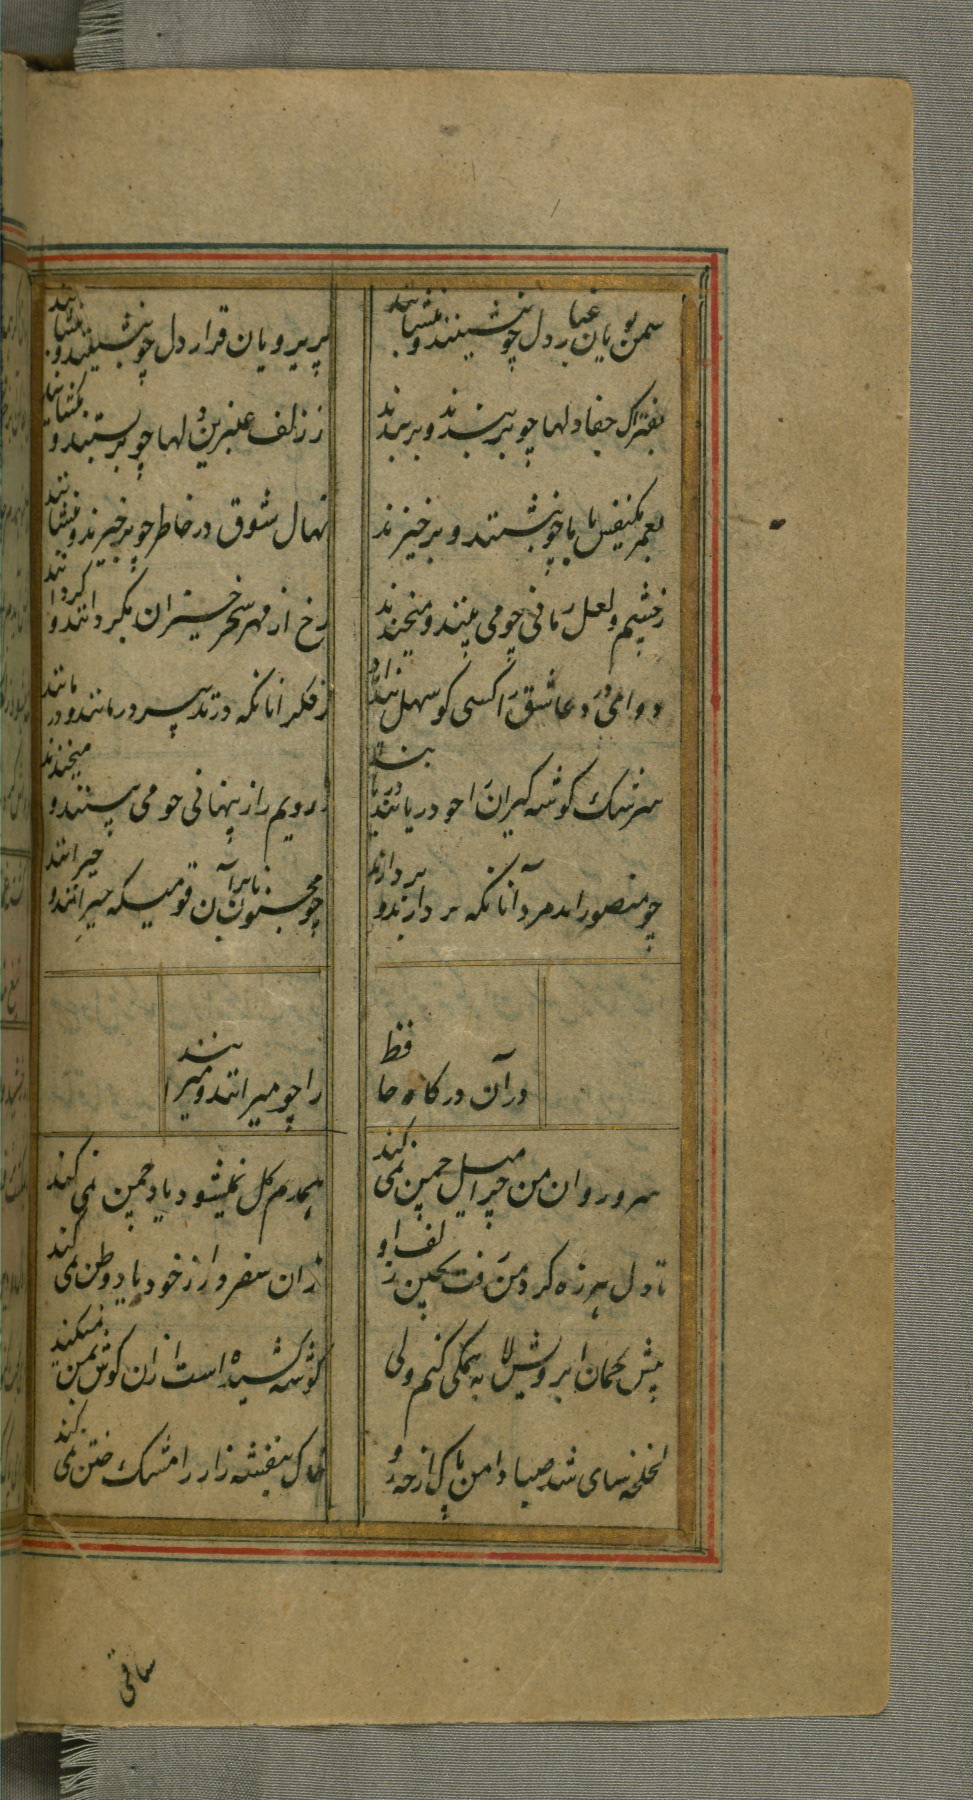 سمن بویان غبار دل چو بنشینند و بنشانند
پریرویان قرار دل چو بستیزند و بنشانند
بفتراک جفا دلها چو بربندند و بربندند
ز زلف عنبرین دلها چو بربستند و بگشایند
بعمر یکنفس با ما چو بنشستند و برخیزند
نهال شوق در خاطر چو برخیزند و بنشانند
ز چشم لعل رمانی چو می بینند و میخندند
رخ از مهر سحرخیزان نگردانند و گردانند
دوای درد عاشق را کسی کو سهل پندارد
ز فکر انانکه در تدبیر درمانند و درمانند
سرشک گوشه گیران را چو دریابند دریابند
ز رویم راز پنهانی چو می بینند و میخندند
چو منصور اند مرد آنانکه بر دارند و بردارند
چو مجنون بنابرآن قومیکه حیرانند و حیرانند
در آن درگاه حافظ
را چو میرانند و میرانند
سرو روان من چرا میل چمن نمی کند
همدم گل نمیشود یاد چمن نمی کند
تا دل هرزه گرد من رفت بچین زلف او
زان سفر دراز خود یاد وطن نمی کند
پیش کمان ابرویش لابه همی کنم ولی
گوشه کشیده است ازان گوش بمن نمیکند
لخلخه سای شد صبا دامن پاک از چه رو
خاک بنفشه زار را مشک ختن نمی کند
ساقی